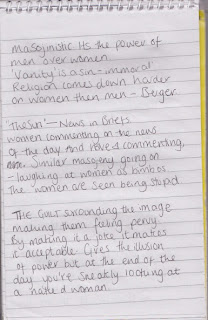 masojinistic. Its the power of
men over women
'Vanity' is a sin = immoral
Religion comes down harder
on women then men - Berger
"The Sun" - News in Briefs
women commenting on the news
of the day. And relived commenting,
Similar masogeny going on
- laughing at women as bimbos
The women are seen being stupid
The Guilt surounding the image
making them feeling pervy
By making it a joke it makes
it acceptable. Gives the illusion
of power but at the end of the
day you're sneakily looking at
a naked woman.